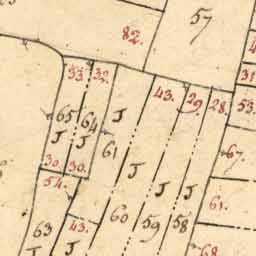 57
82.
4
33. 32.
31
43. 29. 28.
53.
65 64 J
J J 61
67.
30. 30. J
54. J J
61.
63 43. 60 59 58
J J
68